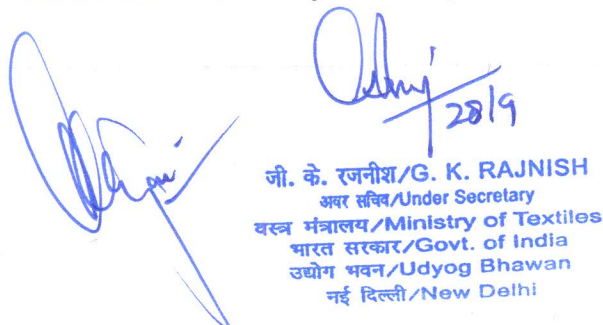 28/9
जी. के. रजनीश/G. K. RAJNISH
अवर सचिव/Under Secretary
वस्त्र मंत्रालय/Ministry of Textiles
भारत सरकार/Govt. of India
उद्योग भवन/Udyog Bhawan
नई दिल्ली/New Delhi